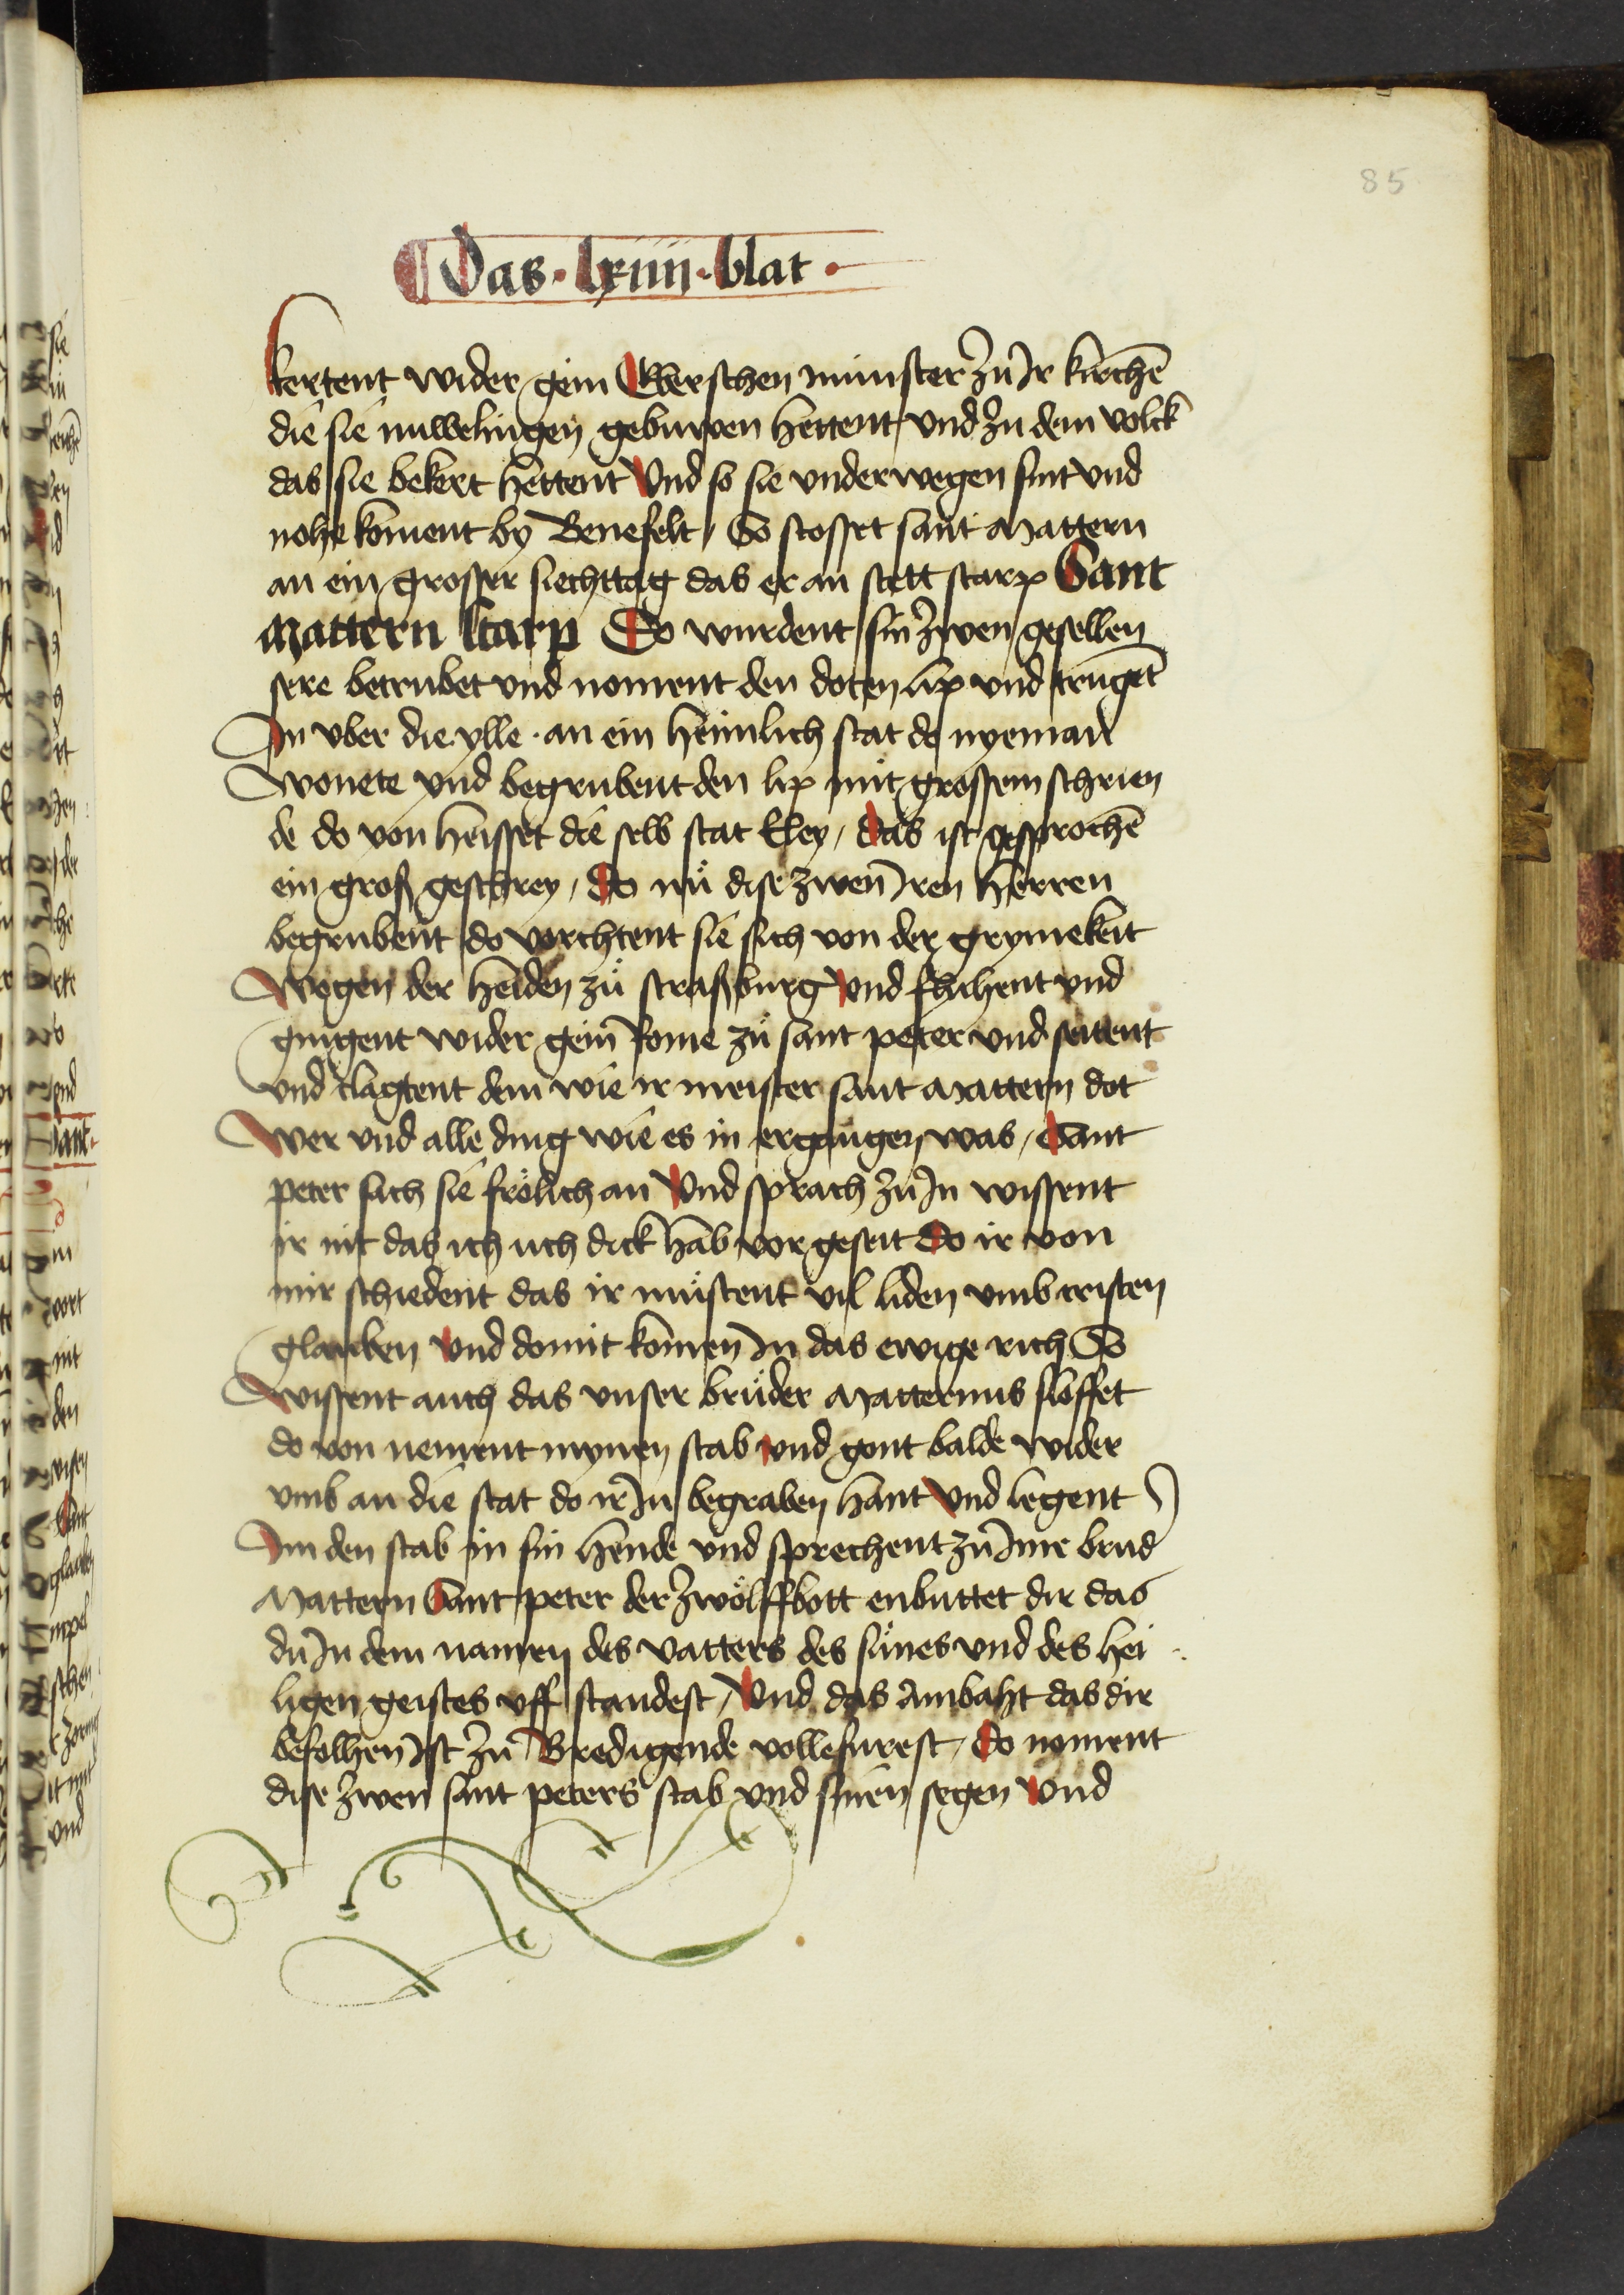 85
Das · lxiiii · blat ·
kertent wider gein Eberschen munster zů Ir kirchē
die sie nuwelingen gebuwen hettent vnd zu dem volck
das sie bekert hettent Vnd so sie vnderwegen sint vnd
nohe koment by Benefelt / So stosset sant Mattern
an ein grosser siechttag das er an stett starp Sant
Mattern starp Do wurdent sin zwen gesellen
sere betrubet vnd noment den doten lip vnd trugēt
In vber die ylle · an ein heimlich stat do nyeman
wonete vnd begrubent den lip mit grossem schrien
de do von heisset die selb stat Eley / das ist gesprochē
ein groß geschrey / do nů dise zwen Iren herren
begrubent do vorchtent sie sich von der grymekeit
wegen der heiden zů straßburg vnd fluhent vnd
gingent wider gein Rome zů sant peter vnd seitent
vnd clagtent dem wie ir meister sant Mattern dot
wer vnd alle ding wie es in ergangen was / Sant
peter sach sie frölich an Vnd sprach zů In wissent
ir nit das ich uch dick hab vor geseit do ir von
mir schiedent das ir můstent vil liden vmb cristen
glauben vnd domit komen In das ewige rich So
wissent auch das vnser brůder Matternus sloffet
do von nement mynen stab vnd gont balde wider
vmb an die stat do ir In begraben hant Vnd legent
Im den stab in sin hende vnd sprechent zů Ime brud
Mattern Sant peter der zwölffbott enbuttet dir das
du In dem namen des vatters des sůnes vnd des hei
ligen geistes vff standest / Vnd das Ambaht das dir
befolhen Ist zů Bredigende vollefurest / do noment
dise zwen sant peters stab vnd sinen segen Vnd